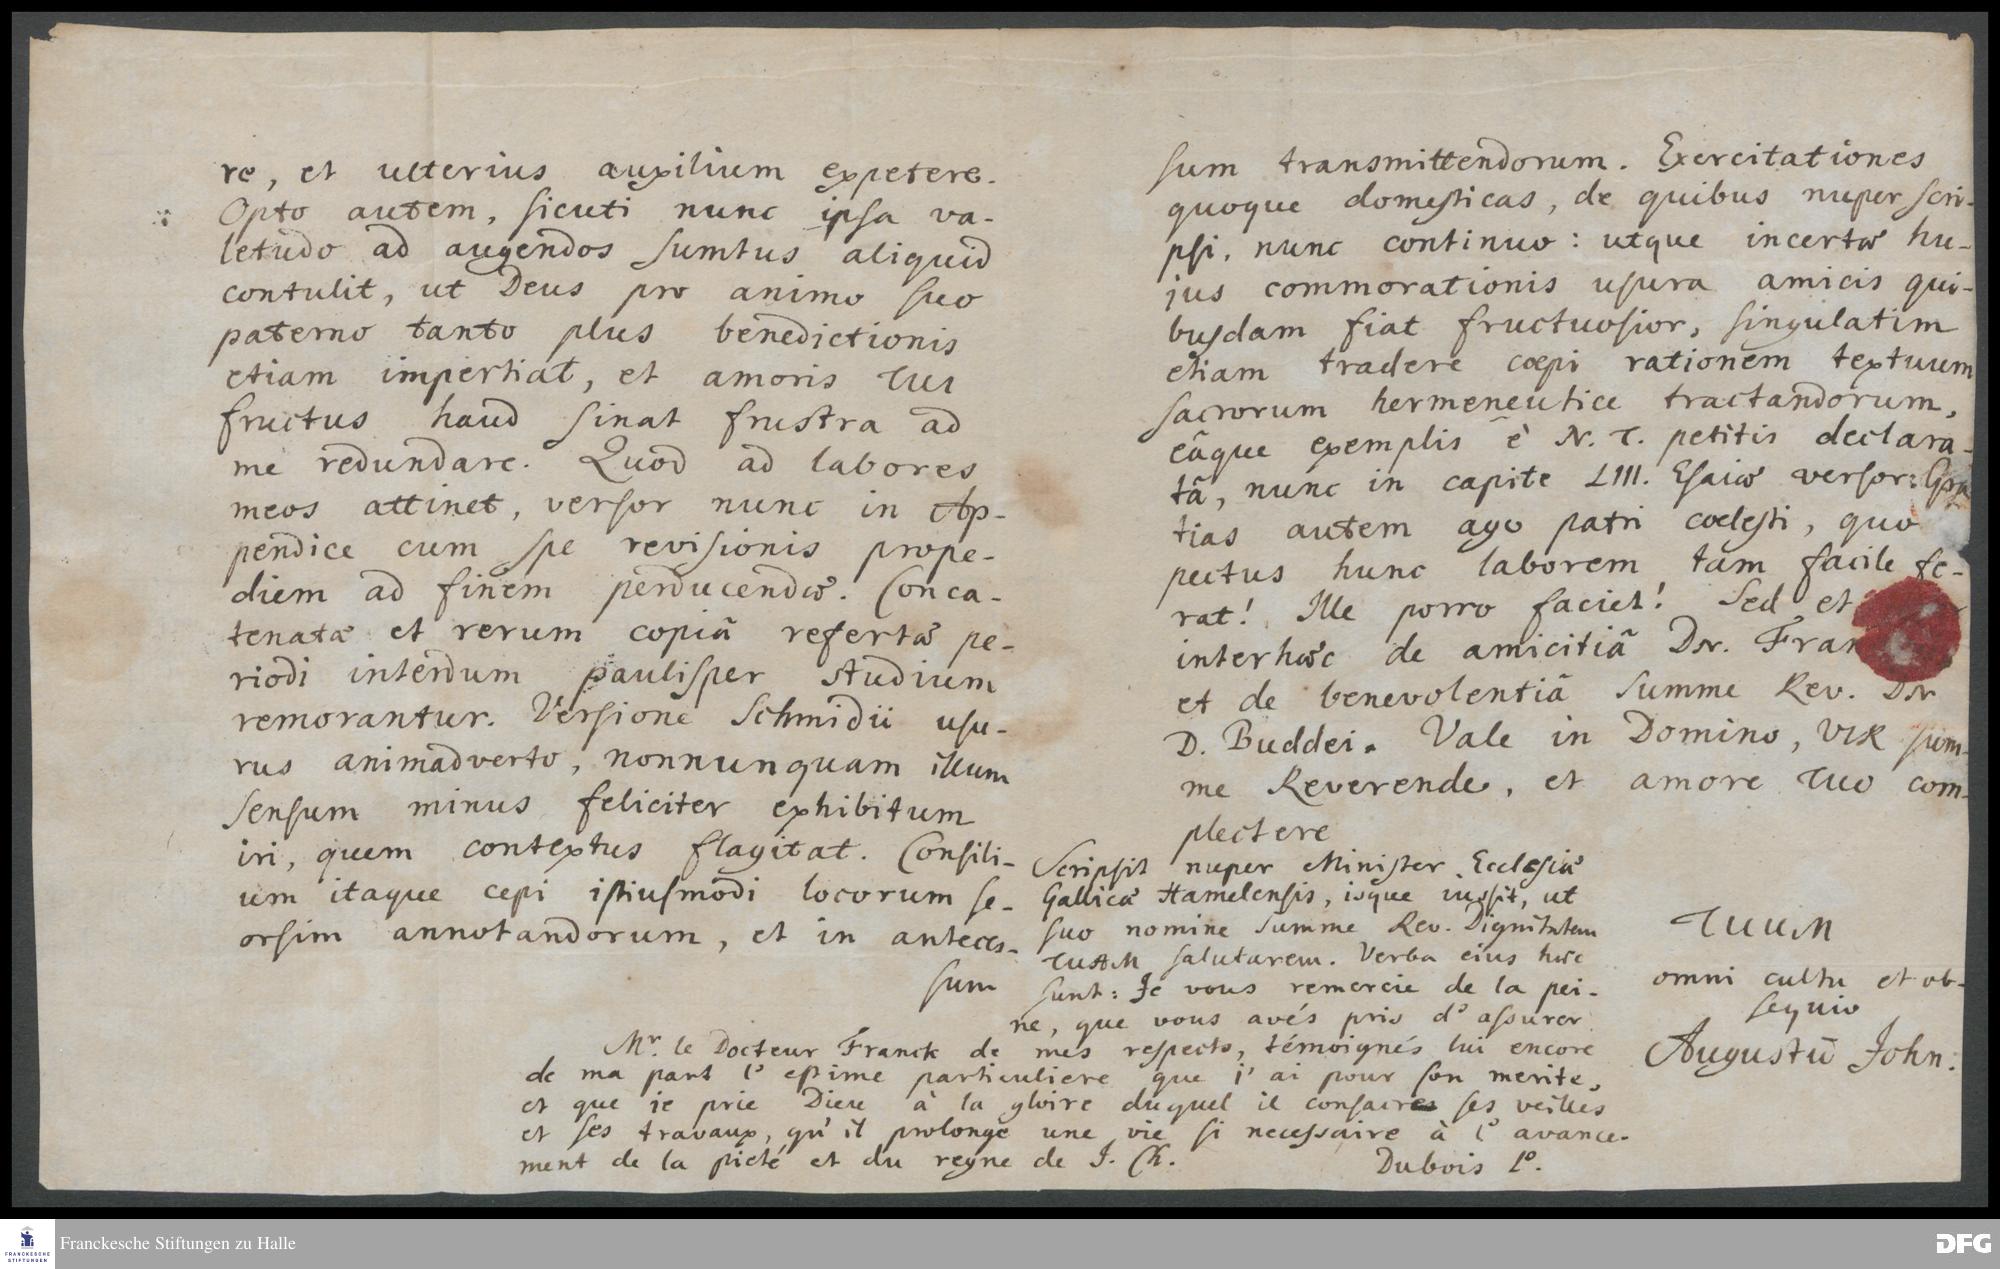 re, et ulterius auxilium expetere.
Opto autem, sicuti nunc ipsa va-
letudo ad augendos sumtus aliquid
contulit, ut Deus pro animo suo
paterno tanto plus benedictionis
etiam impertiat, et amoris TUI
fructus haud sinat frustra ad
me redundare. Quod ad labores
meos attinet, versor nunc in Ap-
pendice cum spe revisionis prope-
diem ad finem perducendæ. Conca-
tenatæ et rerum copiâ refertæ pe-
riodi interdum paulisper studium
remorantur. Versione Schmidii usu-
rus animadverto, nonnunquam illum
sensum minus feliciter exhibitum
iri, quem contextus flagitat. Consili-
um itaque cepi istiusmodi locorum se-
orsim annotandorum, et in anteces-
sum
sum transmittendorum. Exercitationes
quoque domesticas, de quibus nuper scri-
psi, nunc continuo: utque incertæ hu-
jus commorationis usura amicis qui-
busdam fiat fructuosior, singulatim
etiam tradere cœpi rationem textuum
sacrorum hermeneutice tractandorum,
eâque exemplis è N. T. petitis declara-
tâ, nunc in capite LIII. Esaiæ versor: Gra
tias autem ago patri cœlesti, quo
pectus hunc laborem tam facile fe-
rat! Ille porro faciet! Sed et
interhæc de amicitiâ Dn. Fran
et de benevolentiâ Summe Rev. Dn
D. Buddei. Vale in Domino, VIR sum-
me Reverende, et amore TUO com-
plectere
TUUM
omni cultu et ob-
sequio
Augustũ John.
Scripsit nuper Minister Ecclesiæ
Gallicæ Hamelensis, isque iussit, ut
suo nomine Summe Rev. Dignitatem
TUAM salutarem. Verba eius hæc
sunt: Je vous remercie de la pei-
ne, que vous avés pris d'assurer
Mr. le Docteur Franck de mes respects, témoignés lui encore
de ma part l'estime particuliere que j'ai pour son merite,
et que je prie Dieu à la gloire duquel il consacre ses veilles
et ses travaux, qu'il prolonge une vie si necessaire à l'avance-
ment de la pieté et du regne de J. Ch. Dubois
Franckesche Stiftungen zu Halle
FRANCKESCHE
STIFTUNGEN
DFG